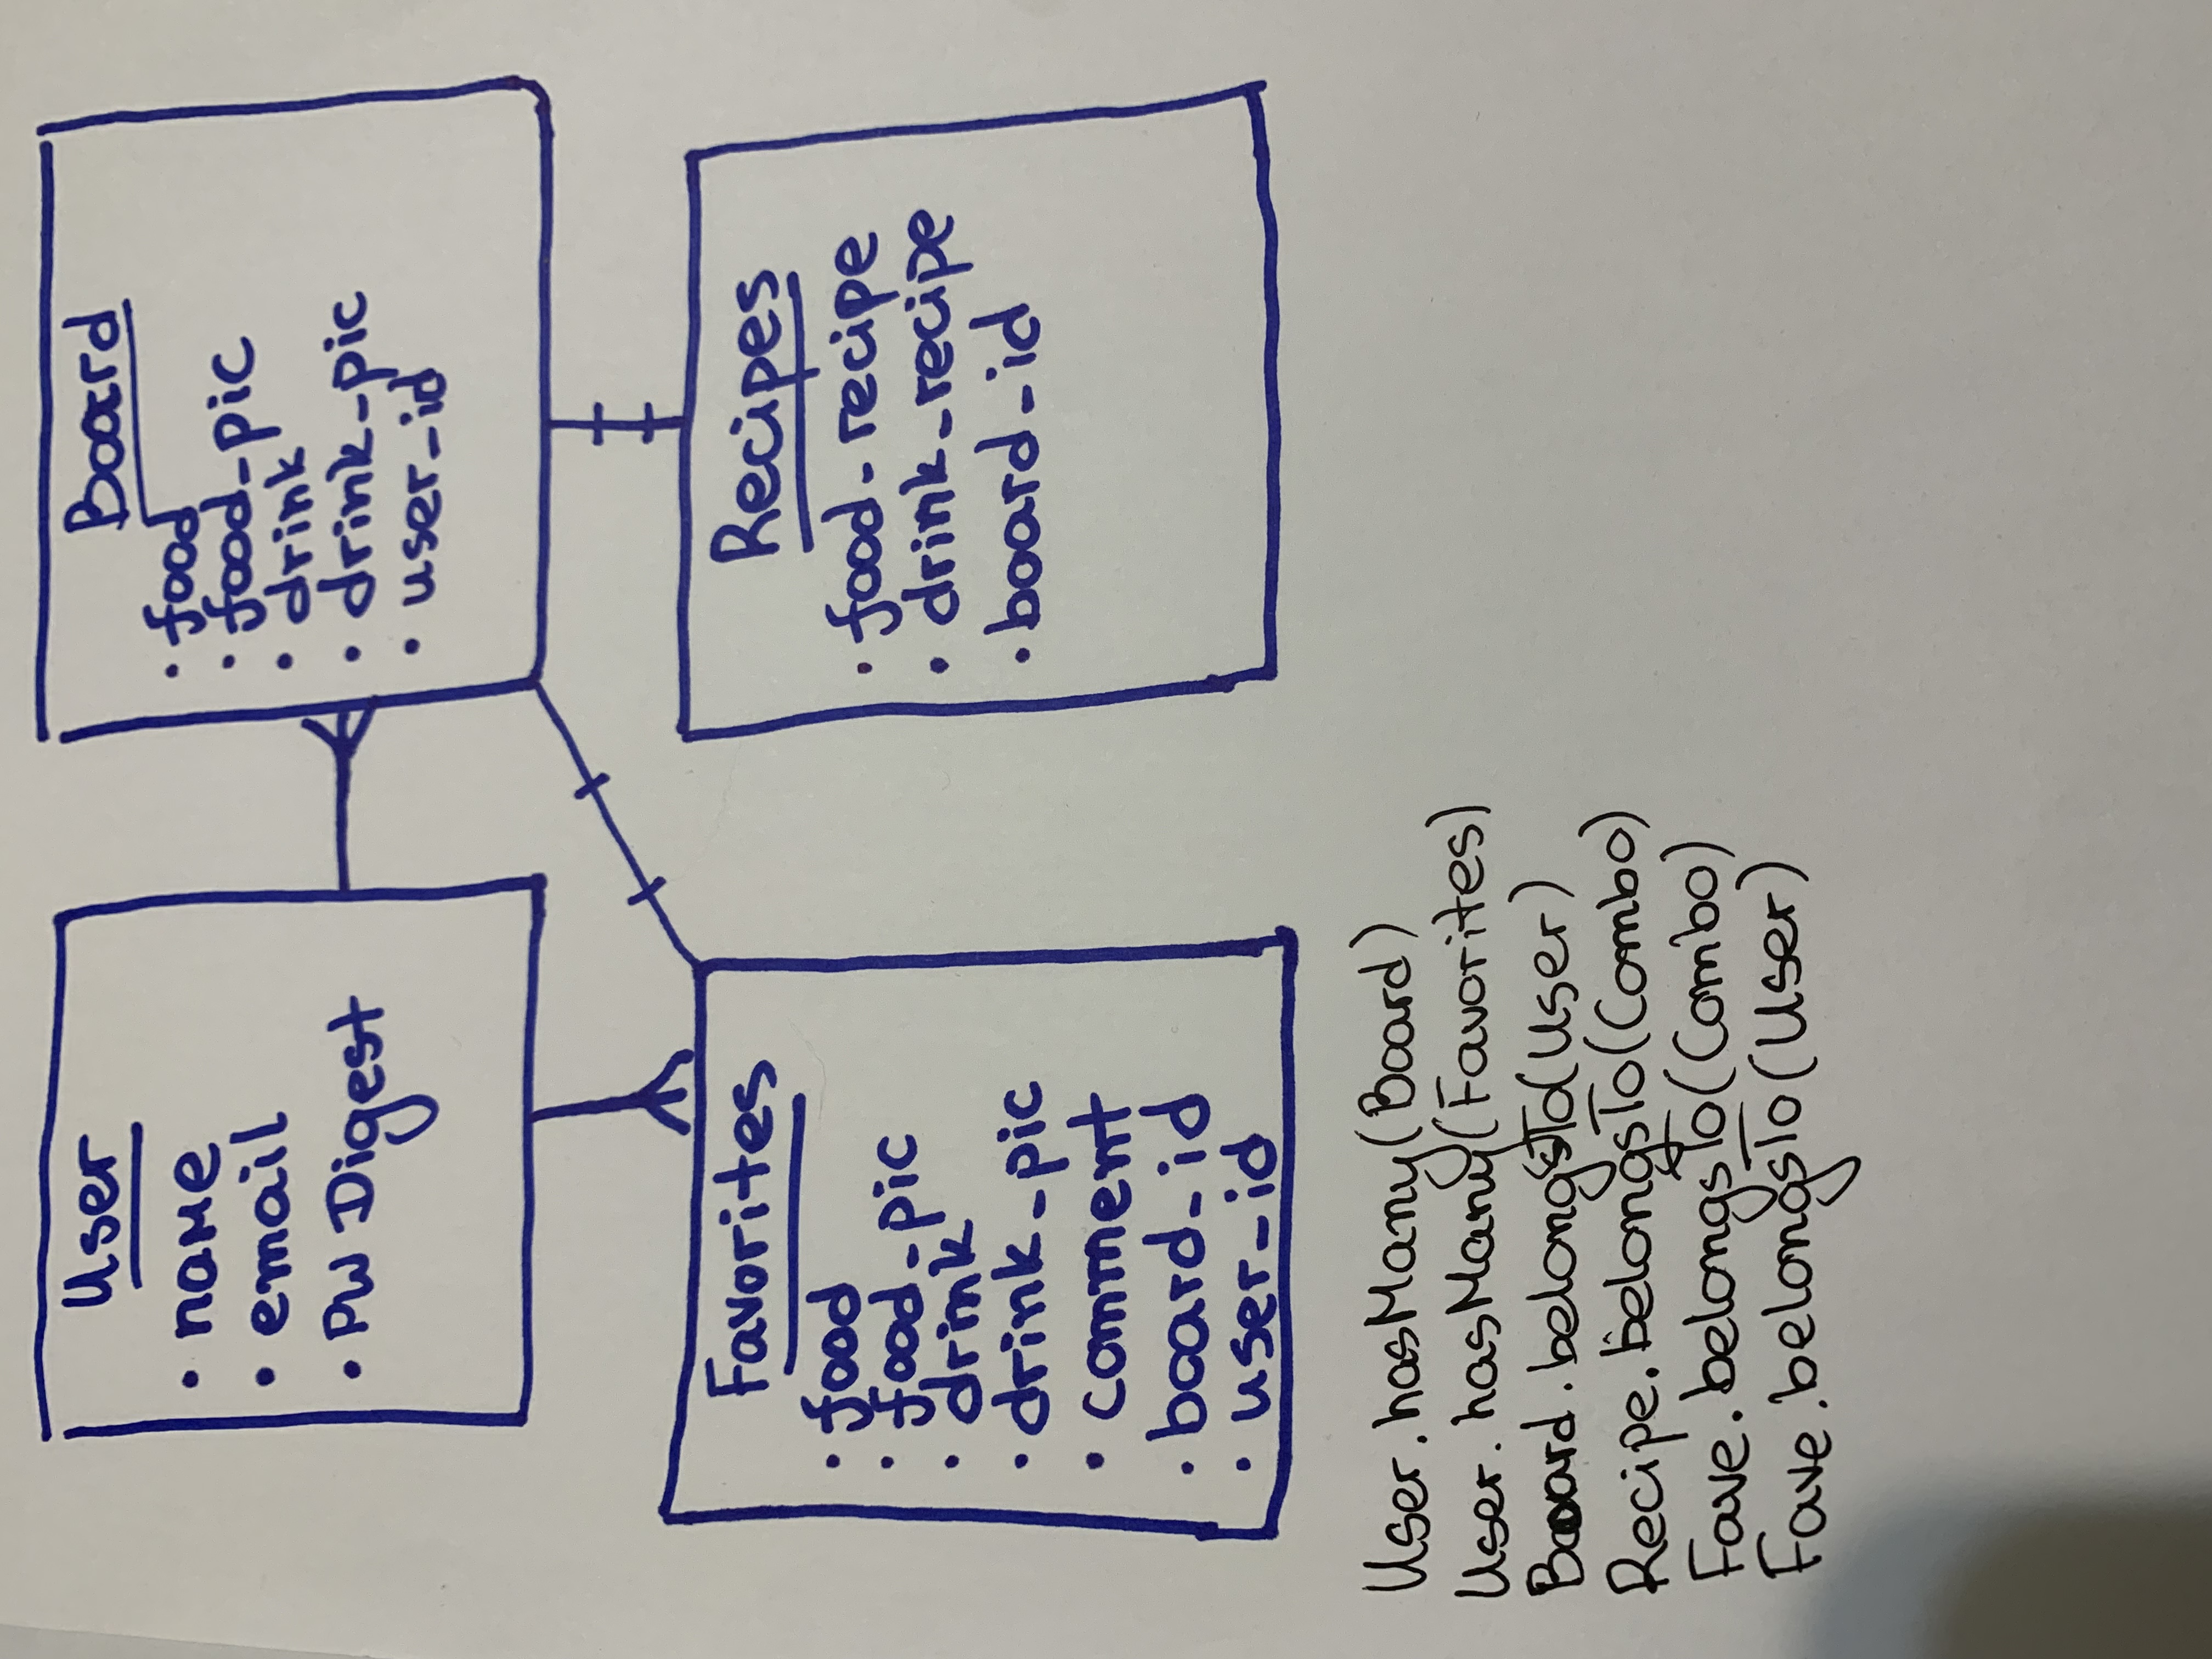 User
• name
• email
• PW Digest
Board
• food
• food_pic
• drink
• drink_pic
• user_id
Favorites
• food
• food_pic
• drink
• drink_pic
• comment
• board_id
• user_id
Recipes
• food_recipe
• drink_recipe
• board_id
User.hasMany(Board)
User.hasMany(Favorites)
Board.belongsTo(User)
Recipe.belongsTo(Combo)
Fave.belongsTo(Combo)
Fave.belongsTo(User)